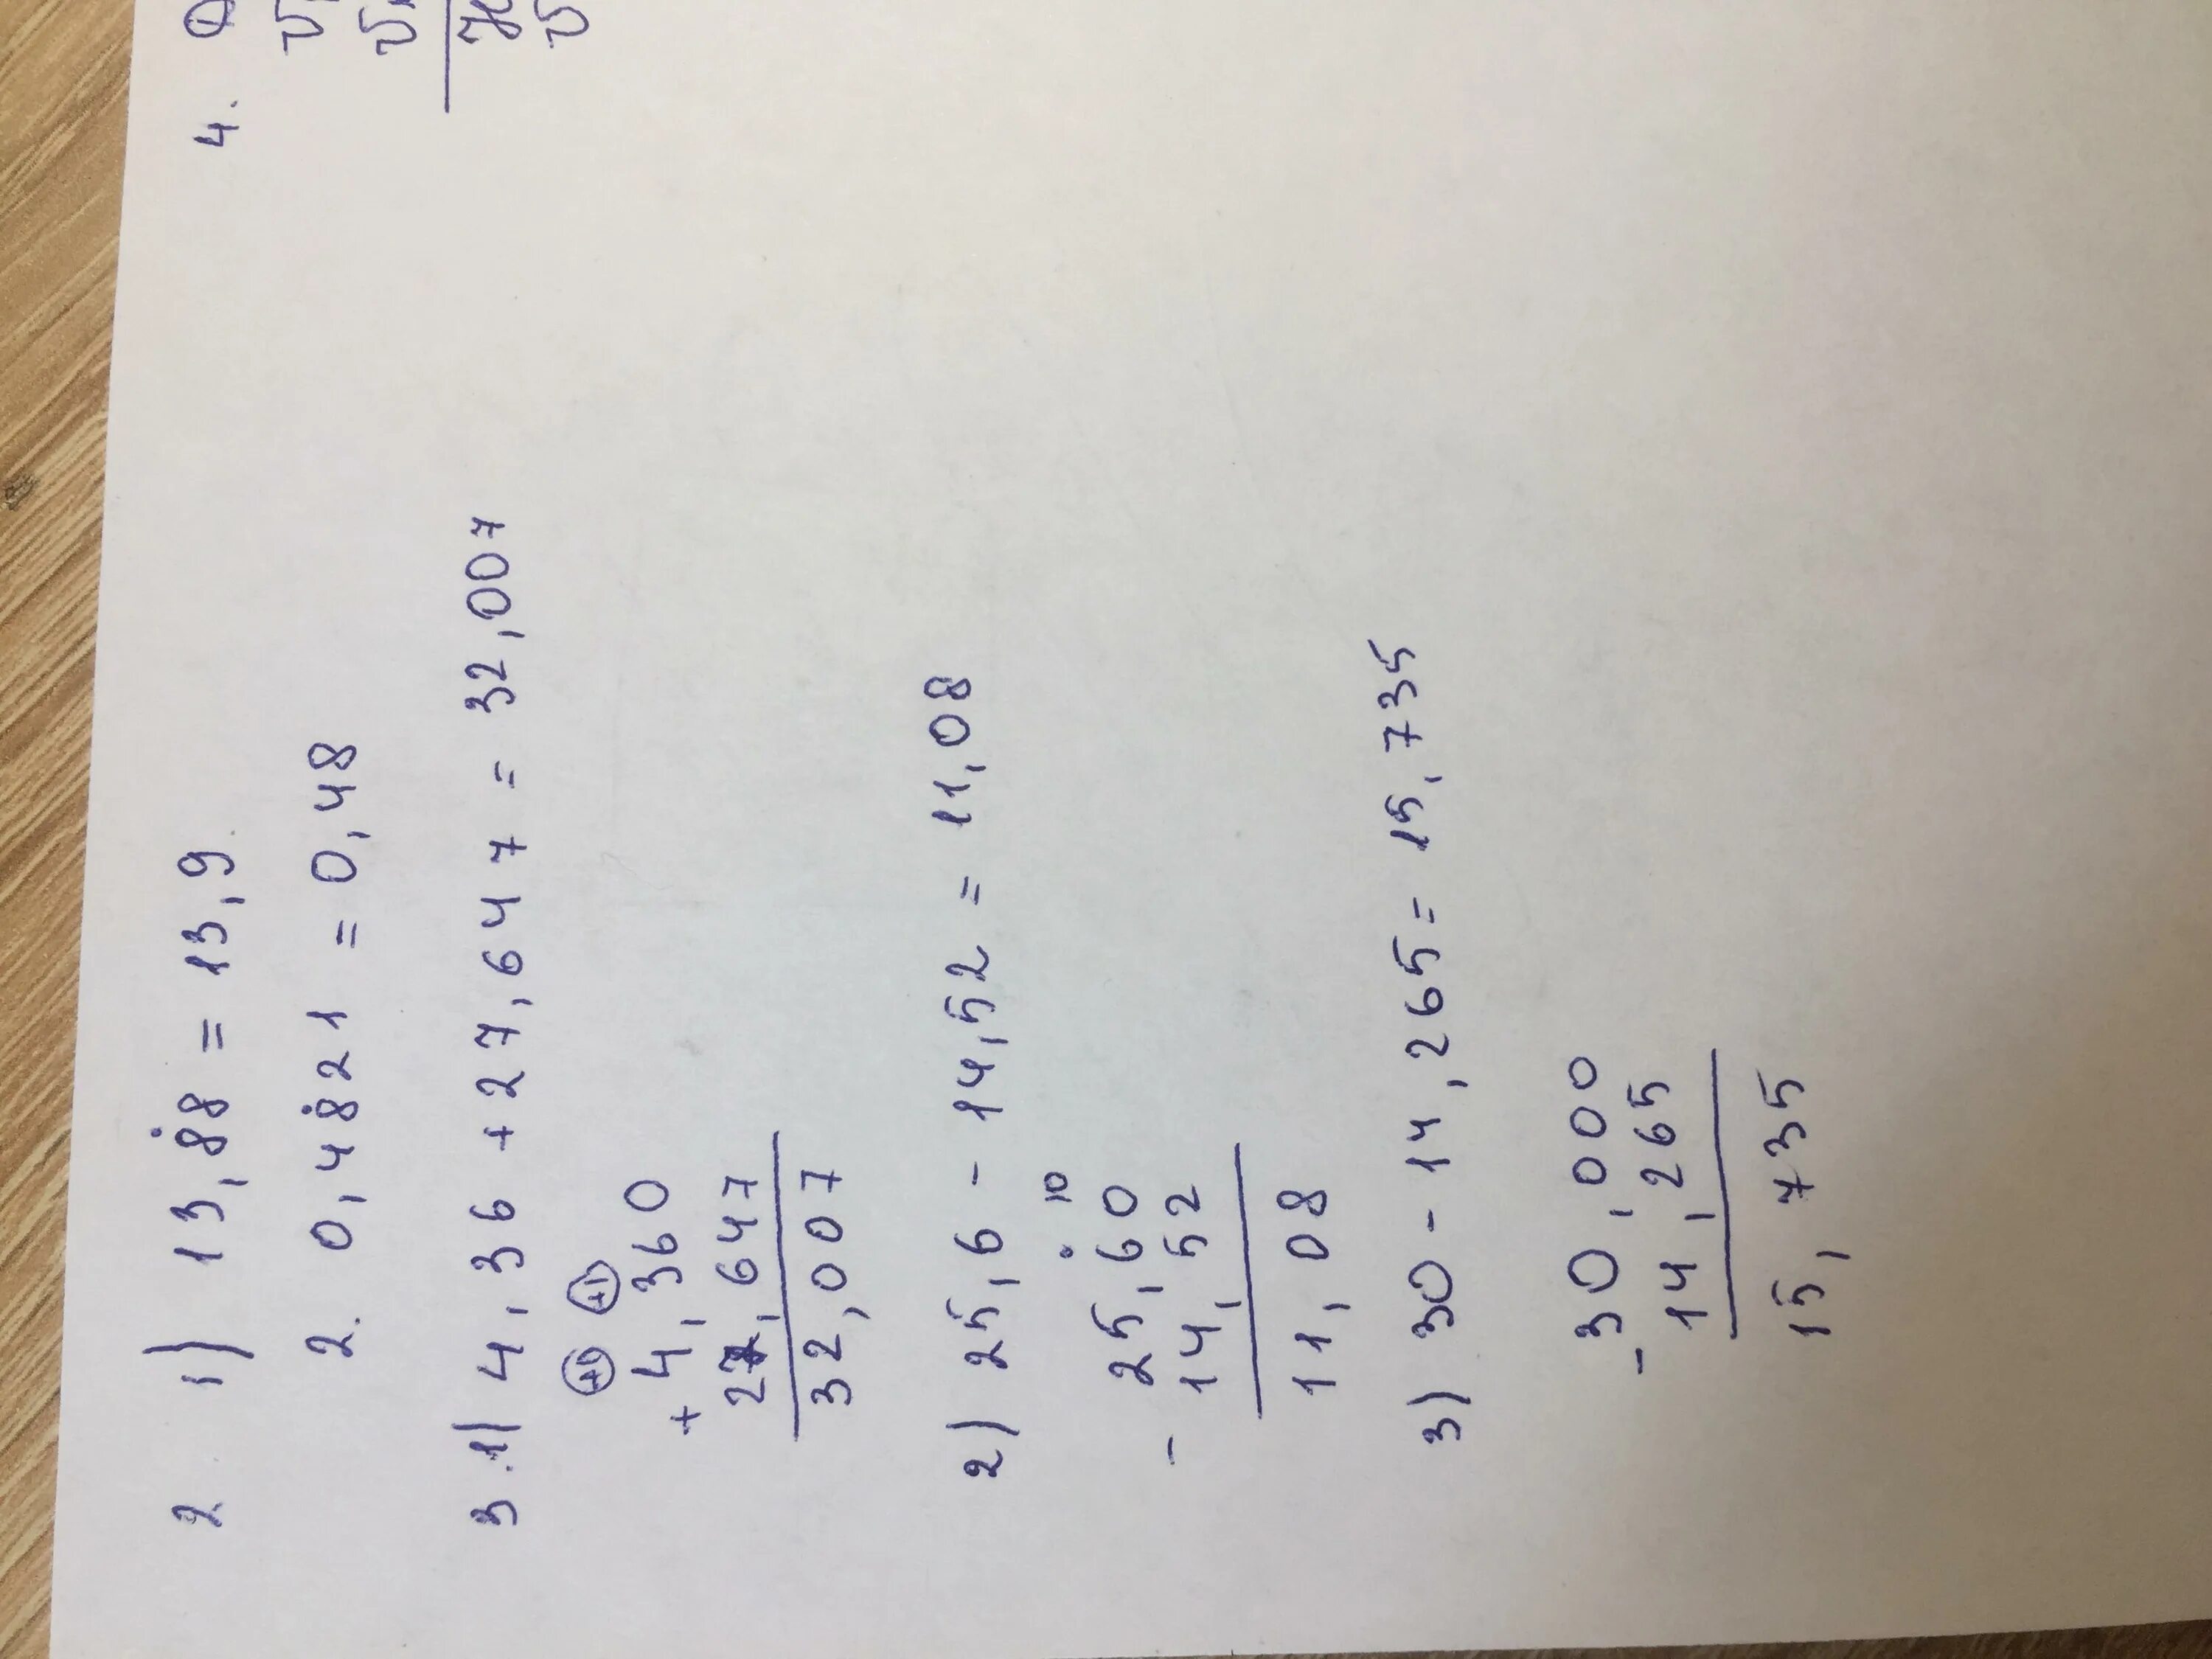 2 1) 13,88 = 13,9
2. 0,4821 = 0,48
3.1) 4,36 + 27,647 = 32,007
+1 +1
+ 4,360
27,647
32,007
2) 25,6 - 14,52 = 11,08
10
- 25,60
14,52
11,08
3) 30 - 14,265 = 15,735
- 30,000
14,265
15,735
4.